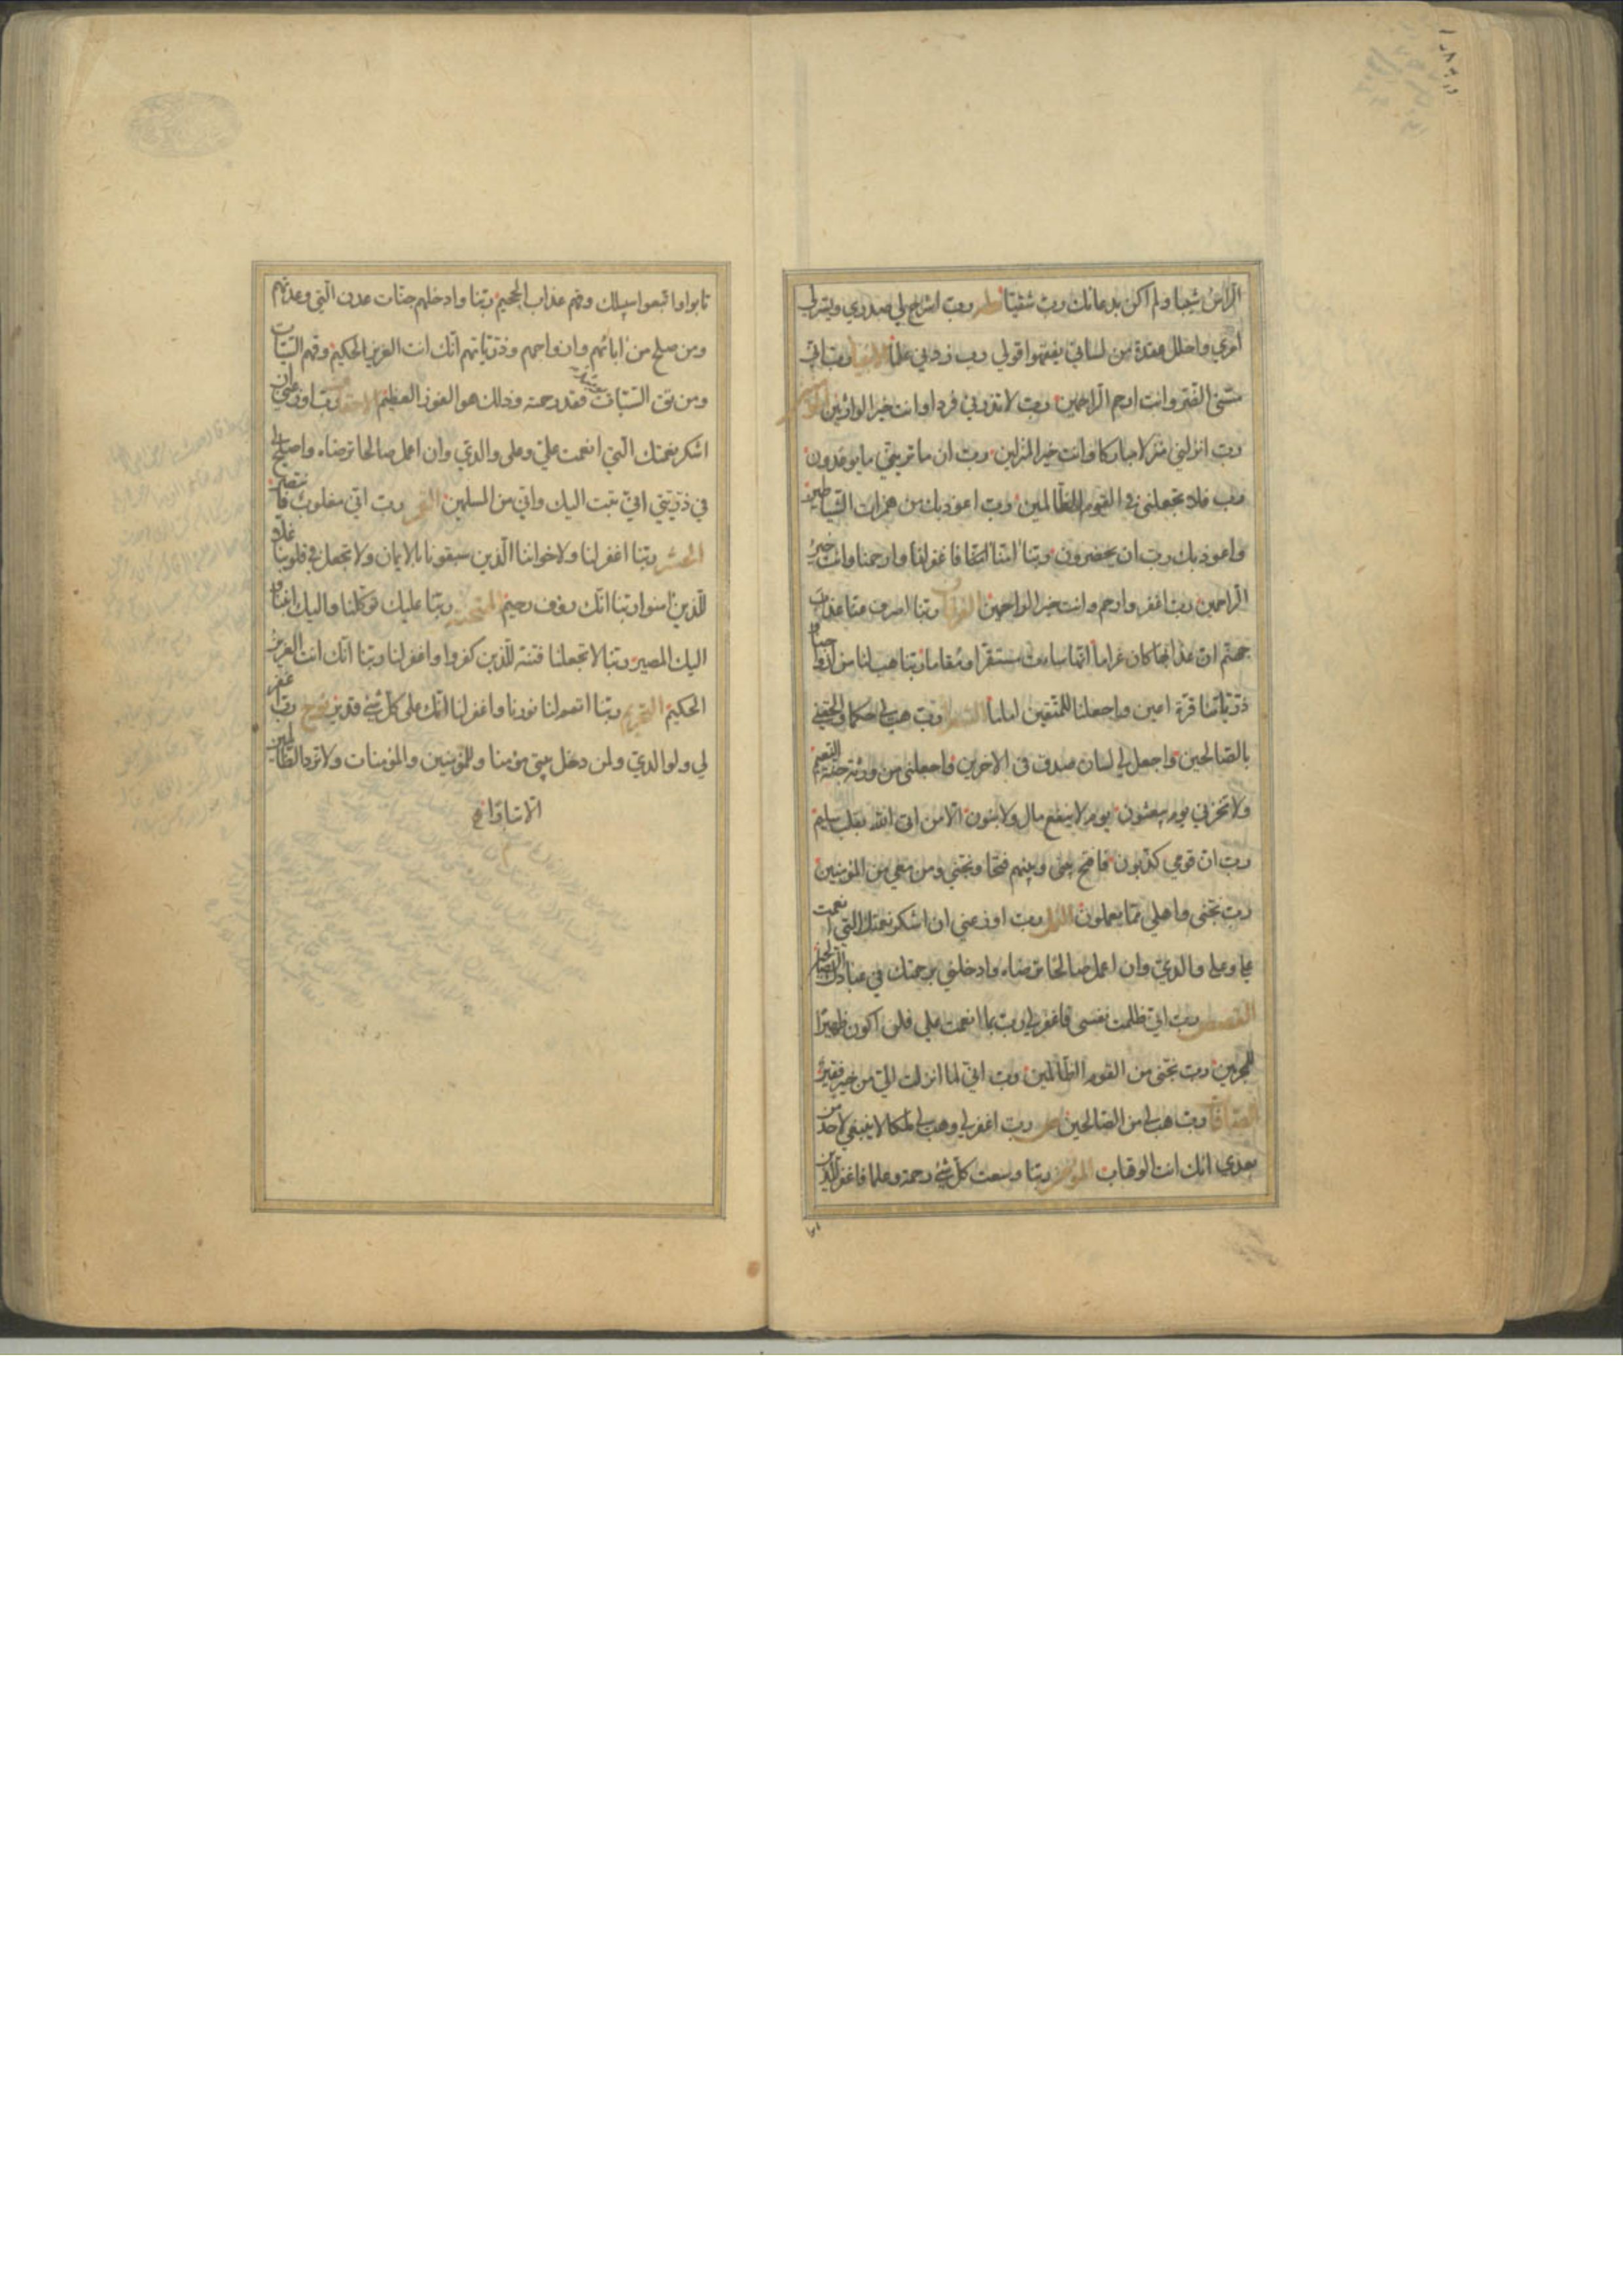 الرأس شيبا ولم اكن بدعائك رب شقيا طه رب اشرح لي صدري ويسر لي
أمري واحلل عقدة من لساني يفقهوا قولي رب زدني علما الانبيا رب اني
مسني الضر وانت ارحم الراحمين رب لا تذرني فردا وانت خير الوارثين
رب انزلني منزلا مباركا وانت خير المنزلين رب ان ما تريني ما يوعدون
رب فلا تجعلني في القوم الظالمين رب اعوذ بك من همزات الشياطين
واعوذ بك رب ان يحضرون ربنا امنا فاغفر لنا وارحمنا وانت خير
الراحمين رب اغفر وارحم وانت خير الراحمين الفرقان ربنا اصرف عنا عذاب
جهنم ان عذابها كان غراما انها ساءت مستقرا ومقاما ربنا هب لنا من ازواجنا
ذرياتنا قرة اعين واجعلنا للمتقين اماما الشعرا رب هب لي حكما والحقني
بالصالحين واجعل لي لسان صدق في الآخرين واجعلني من ورثة جنة النعيم
ولا تخزني يوم يبعثون يوم لا ينفع مال ولا بنون الا من اتى الله بقلب سليم
رب ان قومي كذبون فافتح بيني وبينهم فتحا ونجني ومن معي من المؤمنين
رب نجني واهلي مما يعملون النمل رب اوزعني ان اشكر نعمتك التي انعمت
علي وعلى والدي وان اعمل صالحا ترضاه وادخلني برحمتك في عبادك الصالحين
القصص رب اني ظلمت نفسي فاغفر لي رب بما انعمت علي فلن اكون ظهيرا
للمجرمين رب نجني من القوم الظالمين رب اني لما انزلت الي من خير فقير
الصافات رب هب لي من الصالحين ص رب اغفر لي وهب لي ملكا لا ينبغي لاحد من
بعدي انك انت الوهاب المؤمن ربنا وسعت كل شئ رحمة وعلما فاغفر للذين
تابوا واتبعوا سبيلك وقهم عذاب الجحيم ربنا وادخلهم جنات عدن التي وعدتهم
ومن صلح من ابائهم وازواجهم وذرياتهم انك انت العزيز الحكيم وقهم السيئات
ومن تق السيئات يومئذ فقد رحمته وذلك هو الفوز العظيم الاحقاف رب اوزعني ان
اشكر نعمتك التي انعمت علي وعلى والدي وان اعمل صالحا ترضاه واصلح لي
في ذريتي اني تبت اليك واني من المسلمين القمر رب اني مغلوب فانتصر
الحشر ربنا اغفر لنا ولاخواننا الذين سبقونا بالايمان ولا تجعل في قلوبنا غلا
للذين امنوا ربنا انك رؤف رحيم الممتحنة ربنا عليك توكلنا واليك انبنا و
اليك المصير ربنا لا تجعلنا فتنة للذين كفروا واغفر لنا ربنا انك انت العزيز
الحكيم التحريم ربنا اتمم لنا نورنا واغفر لنا انك على كل شئ قدير نوح رب اغفر
لي ولوالدي ولمن دخل بيتي مؤمنا وللمؤمنين والمؤمنات ولا تزد الظالمين
الا تبارا